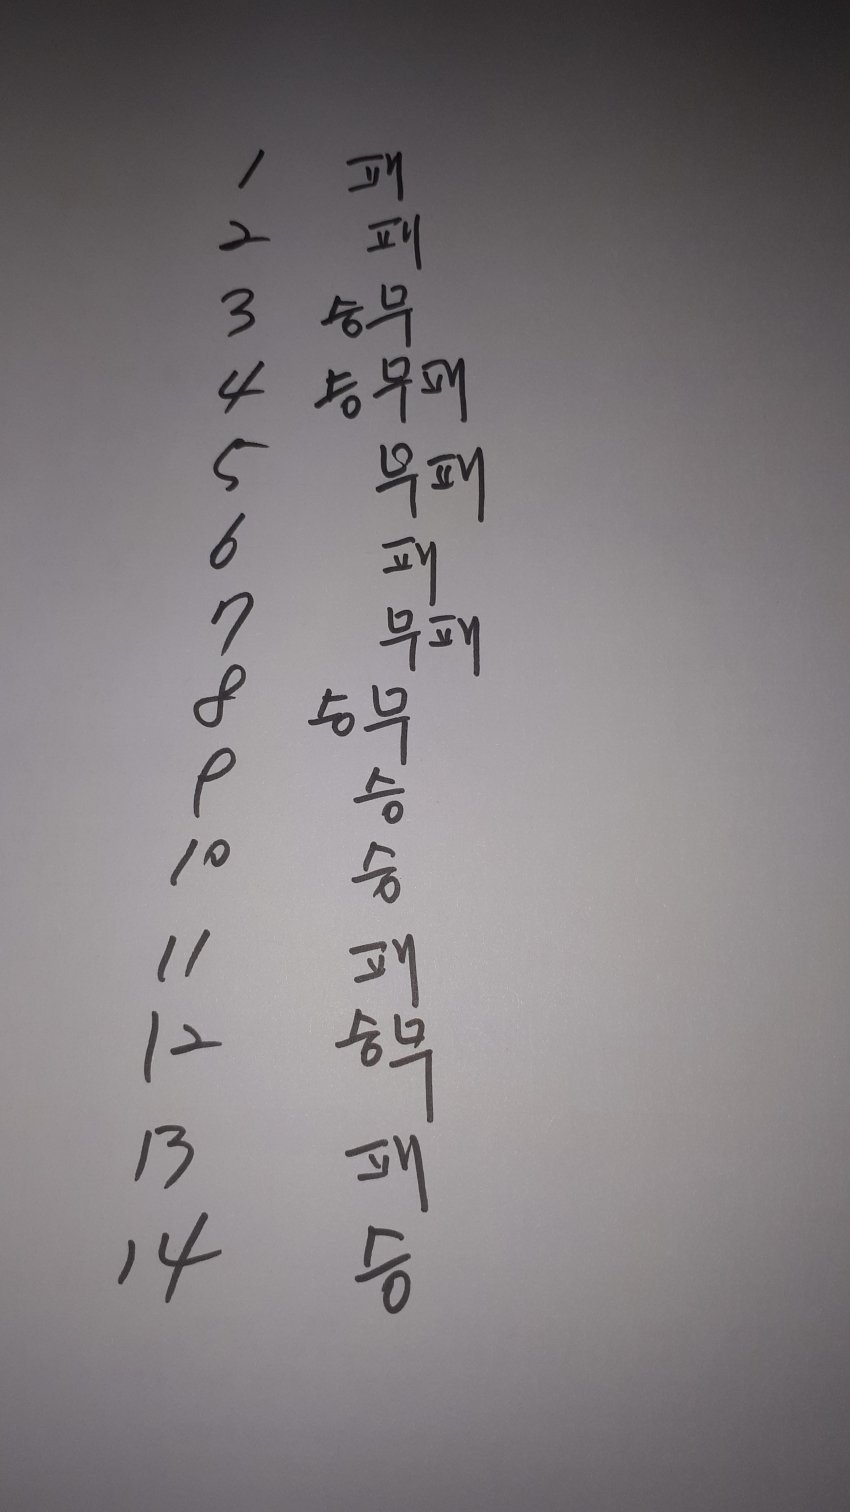 1 패
2 패
3 승무
4 승무패
5 무패
6 패
7 무패
8 승무
9 승
10 승
11 패
12 승무
13 패
14 승